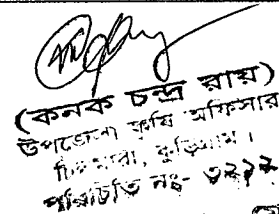 (কনক চন্দ্র রায়)
উপজেলা কৃষি অফিসার
চিলমারী, কুড়িগ্রাম।
পরিচিতি নং- ৩২২২